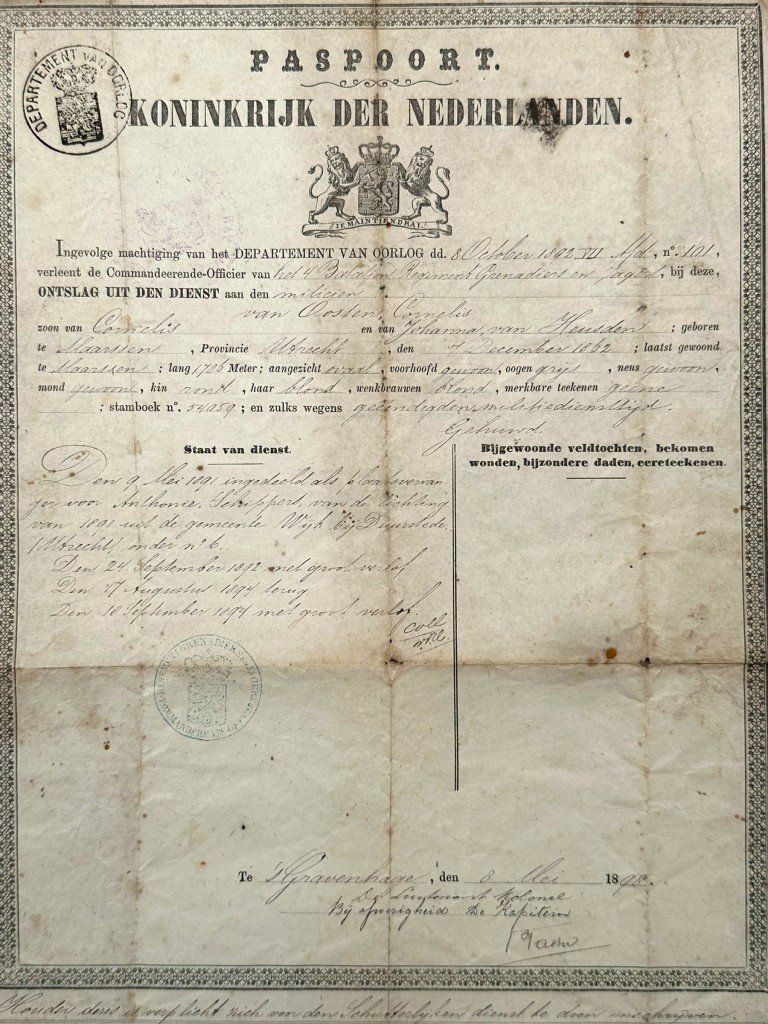 DEPARTEMENT VAN OORLOG
PASPOORT.
KONINKRIJK DER NEDERLANDEN.
JE MAINTIENDRAI
Ingevolge machtiging van het DEPARTEMENT VAN OORLOG dd. 8 October 1892 VII Afd, nº. 101,
verleent de Commandeerende-Officier van het 4e Bataljon Regiment Grenadiers en Jagers, bij deze,
ONTSLAG UIT DEN DIENST aan den milicien
van Oosten, Cornelis
zoon van Cornelis en van Johanna, van Heusden ; geboren
te Maarssen , Provincie Utrecht , den 7 December 1862 ; laatst gewoond
te Maarssen ; lang 1,706 Meter; aangezicht ovaal , voorhoofd gewoon, oogen grijs , neus gewoon,
mond gewoon , kin rond , haar blond , wenkbrauwen blond , merkbare teekenen geene
; stamboek nº. 54959 ; en zulks wegens geëindigden militiediensttijd.
Gehuwd.
Staat van dienst.
Bijgewoonde veldtochten, bekomen
wonden, bijzondere daden, eereteekenen.
Den 9 Mei 1891 ingedeeld als plaatsvervan
ger voor Anthonie, Schippers, van de lichting
van 1891 uit de gemeente Wijk bij Duurstede,
(Utrecht) onder nº 6.
Den 24 September 1892 met groot verlof
Den 17 Augustus 1894 terug
Den 18 September 1894 met groot verlof.
Coll
Te 's Gravenhage , den 8 Mei 1898.
De Luytenant Kolonel
Bij afwezigheid De Kapitein
Houder dezes is verplicht zich voor den Schutterlijken dienst te doen inschrijven.